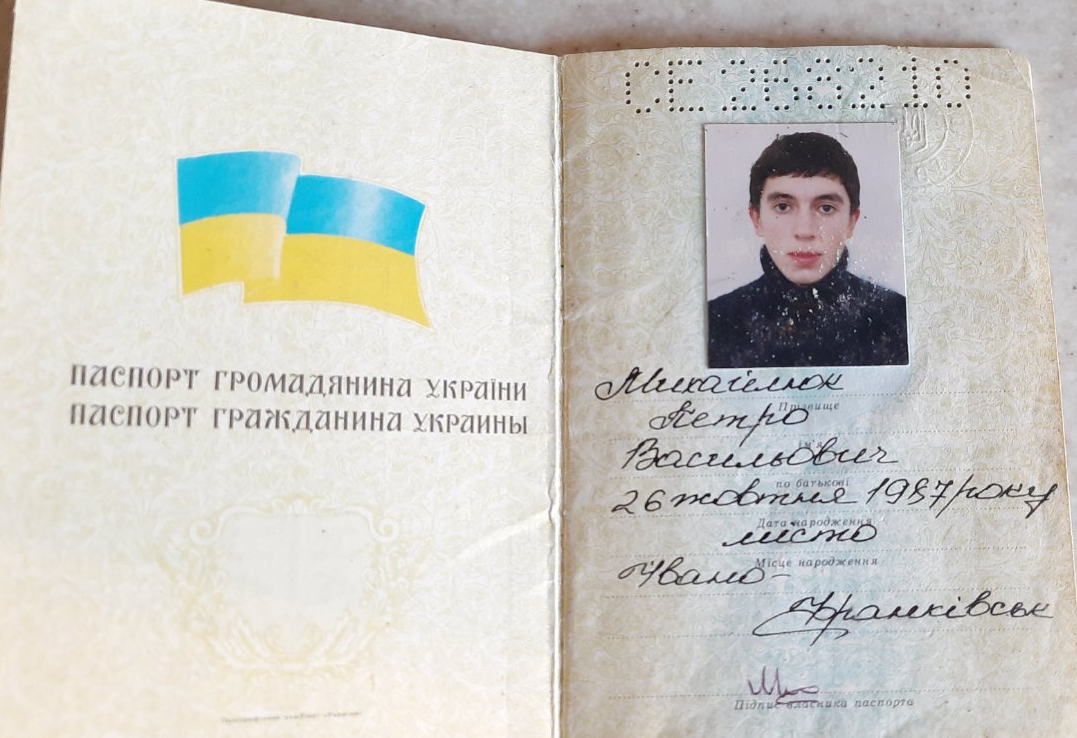 ПАСПОРТ ГРОМАДЯНИНА УКРАЇНИ
ПАСПОРТ ГРАЖДАНИНА УКРАИНЫ
СЕ 268210
Михайлюк
Прізвище
Петро
ім'я
Васильович
по батькові
26 жовтня 1987 року
Дата народження
місто
Місце народження
Івано-
Франківськ
Підпис власника паспорта